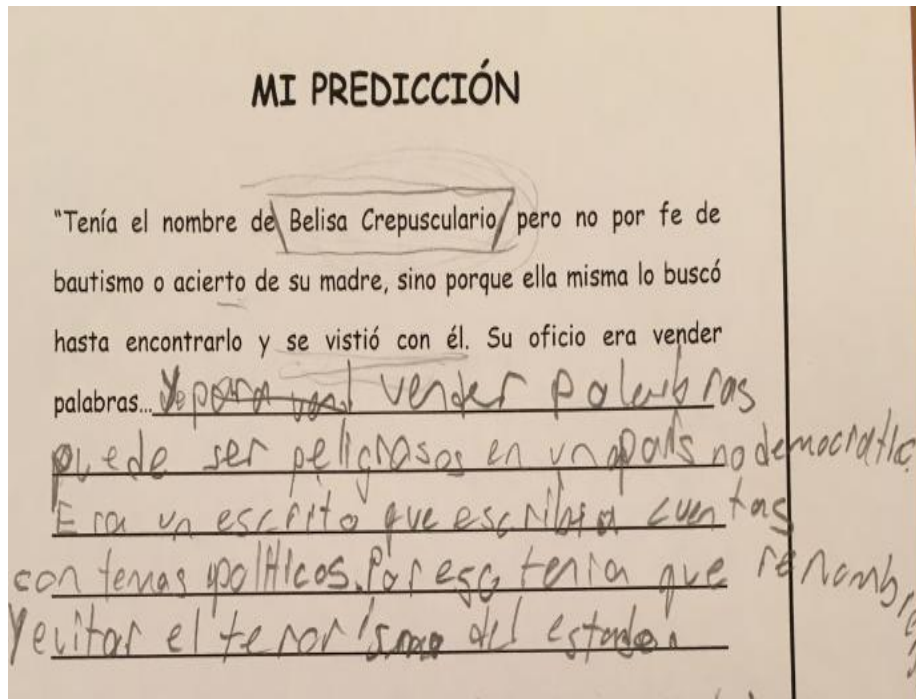 MI PREDICCIÓN
"Tenía el nombre de Belisa Crepusculario pero no por fe de
bautismo o acierto de su madre, sino porque ella misma lo buscó
hasta encontrarlo y se vistió con él. Su oficio era vender
palabras... vender palabras
puede ser peligrosos en un país no democratic
Era un escrito que escribia cuentas
con temas políticos. Por eso tenía que renombra
Y evitar el terorismo del estado.